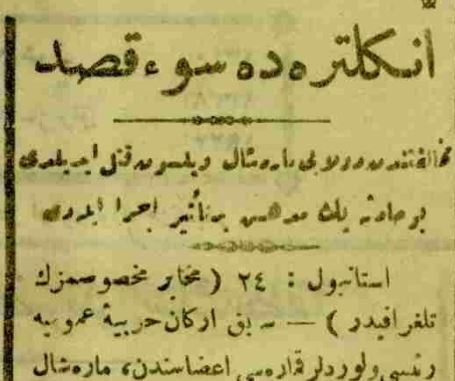 انكلتره ده سوء قصد
مخالفتندن دولايی مارەشال ویلسون قتل ايديلدی
بو حادثه پك مدهش بر تأثير اجرا ايتدی
استانبول : ٢٤ ( مخابر مخصوصمزك
تلغرافيدر ) — سابق اركان حربيهٔ عموميه
رئيسی ولوردلر قماره سی اعضاسندن، ماره شال